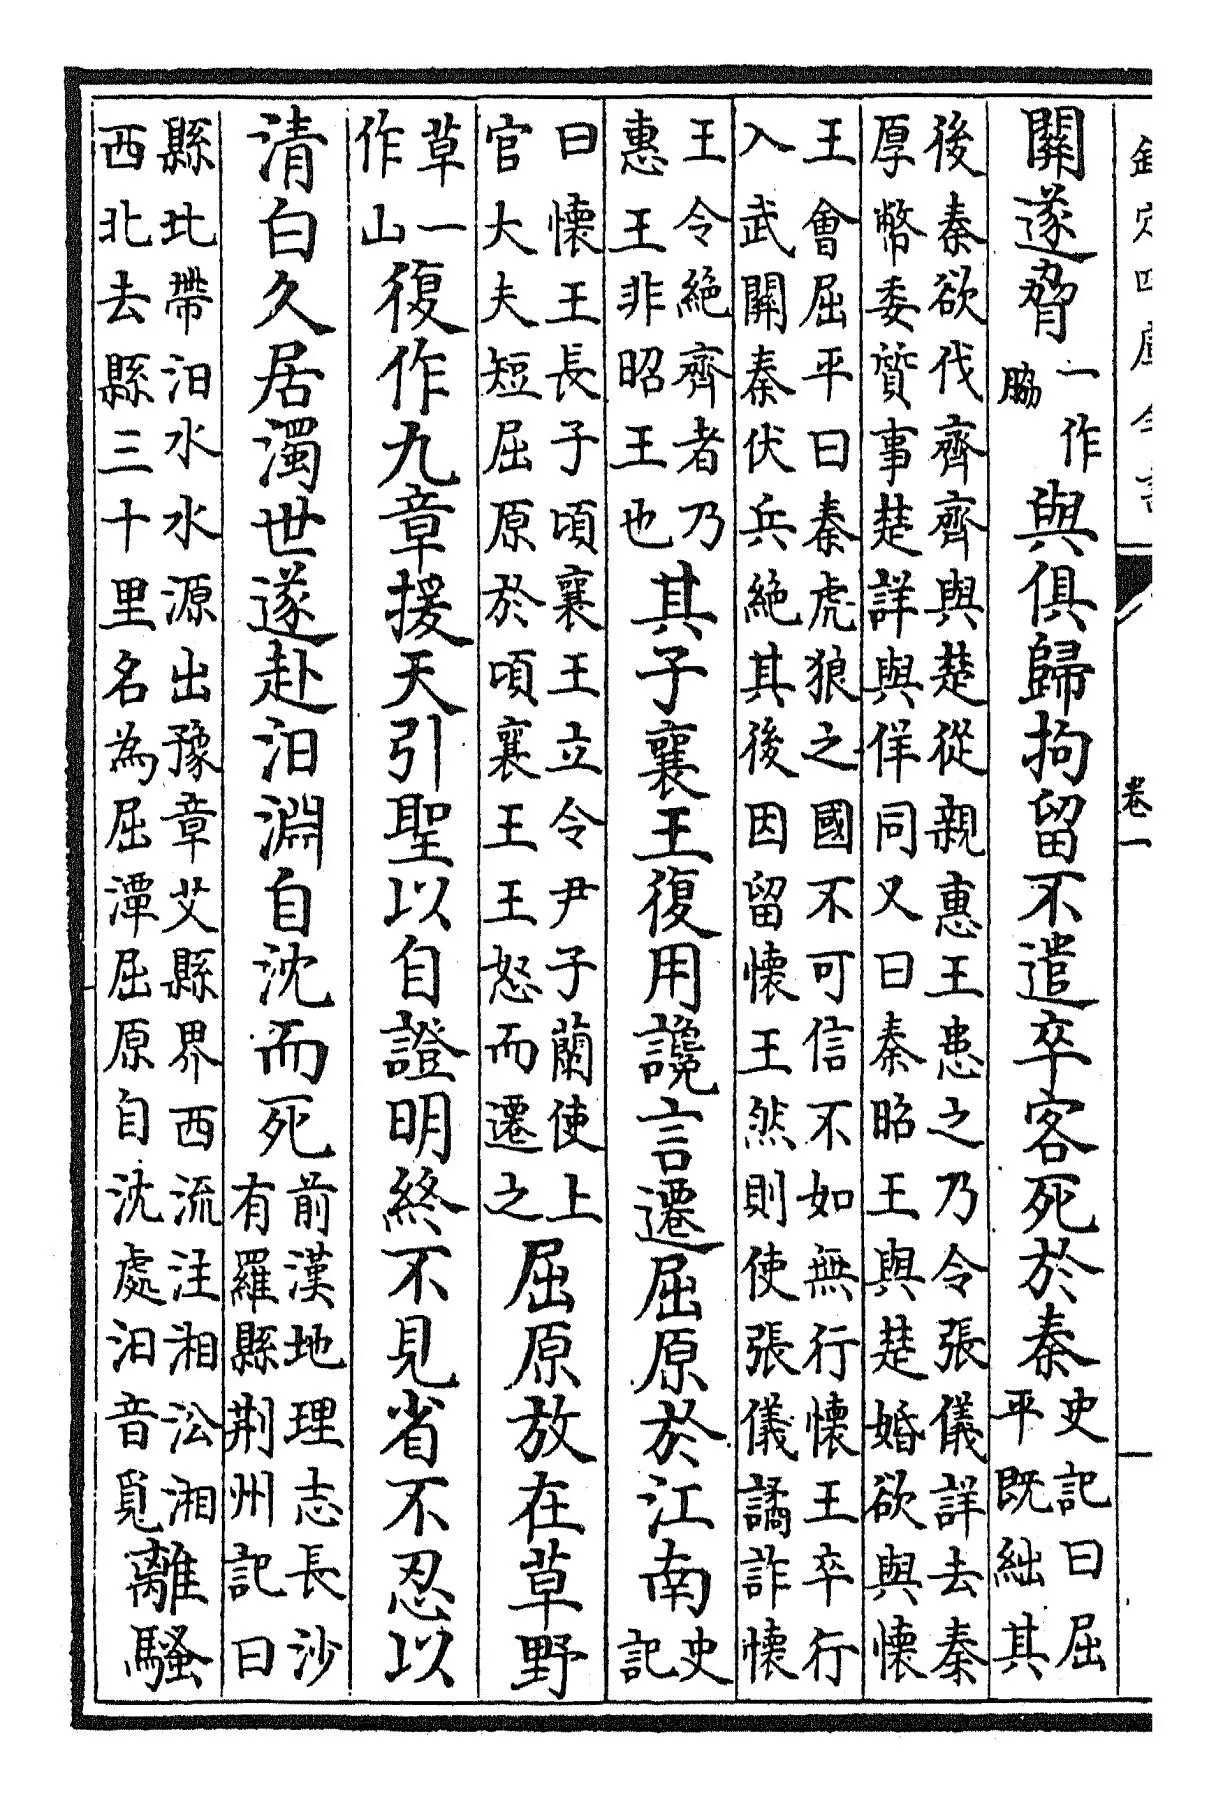 欽定四庫全書
卷一
關遂脅一作脇與俱歸拘留不遣卒客死於秦史記曰屈平既絀其
後秦欲伐齊齊與楚從親惠王患之乃令張儀詳去秦
厚幣委質事楚詳與佯同又曰秦昭王與楚婚欲與懷
王會屈平曰秦虎狼之國不可信不如無行懷王卒行
入武關秦伏兵絶其後因留懷王然則使張儀譎詐懷
王令絶齊者乃惠王非昭王也其子襄王復用讒言遷屈原於江南史記
曰懷王長子頃襄王立令尹子蘭使上官大夫短屈原於頃襄王王怒而遷之屈原放在草野
草一作山復作九章援天引聖以自證明終不見省不忍以
清白久居濁世遂赴汨淵自沈而死前漢地理志長沙有羅縣荆州記曰
縣北帶汨水水源出豫章艾縣界西流注湘㳂湘西北去縣三十里名為屈潭屈原自沈處汨音覓離騷